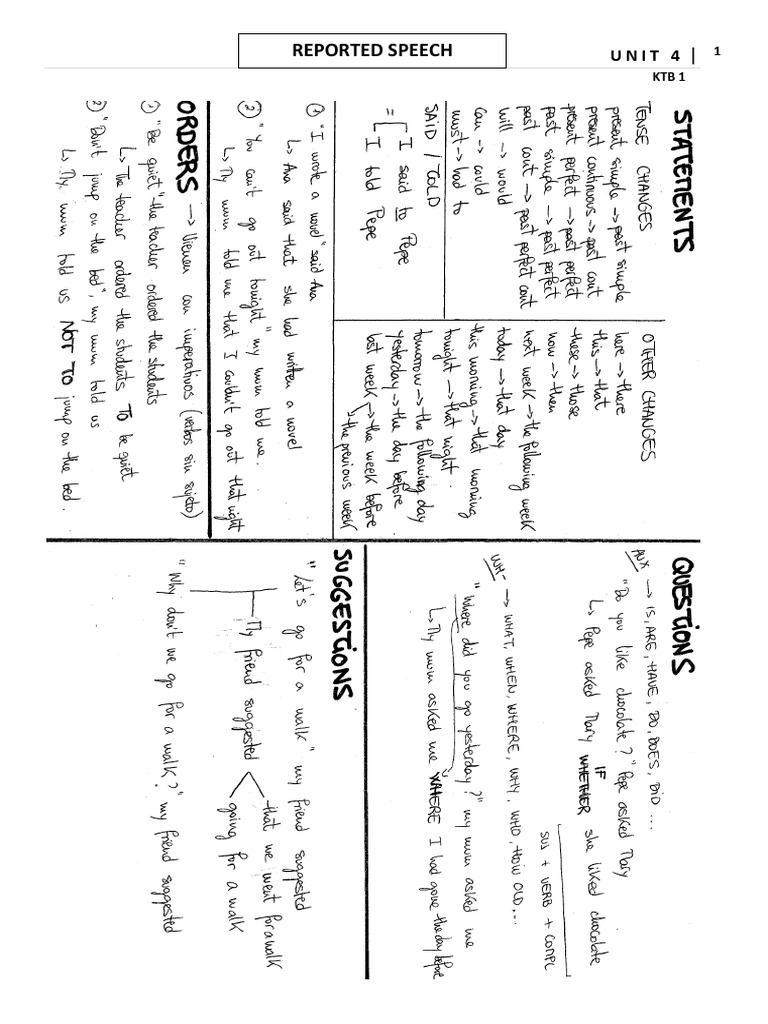 REPORTED SPEECH
UNIT 4 | 1
KTB 1
STATEMENTS
TENSE CHANGES
present simple → past simple
present continuous → past cont
present perfect → past perfect
past simple → past perfect
past cont → past perfect cont
will → would
can → could
must → had to
SAID / TOLD
= [ I said to Pepe
I told Pepe
OTHER CHANGES
here → there
this → that
these → those
now → then
next week → the following week
today → that day
this morning → that morning
tonight → that night.
tomorrow → the following day
yesterday → the day before
last week → the week before
→ the previous week
① "I wrote a novel" said Ana
↳ Ana said that she had written a novel
② "You can't go out tonight" my mum told me.
↳ My mum told me that I couldn't go out that night
ORDERS → Vienen con imperativos (verbos sin sujeto)
① "Be quiet" the teacher ordered the students
↳ The teacher ordered the students TO be quiet
② "Don't jump on the bed", my mum told us
↳ My mum told us NOT TO jump on the bed.
QUESTIONS
AUX → IS, ARE, HAVE, DO, DOES, DID...
"Do you like chocolate?" Pepe asked Mary
↳ Pepe asked Mary IF WHETHER she liked chocolate
SUS + VERB + COMPL
WH- → WHAT, WHEN, WHERE, WHY, WHO, HOW OLD...
"Where did you go yesterday?" my mum asked me
↳ My mum asked me WHERE I had gone the day before
SUGGESTIONS
"Let's go for a walk" my friend suggested
My friend suggested
that we went for a walk
going for a walk
"Why don't we go for a walk?" my friend suggested